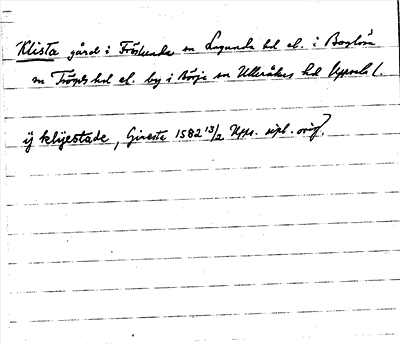 Klista gård i Fröslunda sn Lagunda hd el. i Boglösa
sn Trögds hd el. by i Börje sn Ulleråkers hd Uppsala l.
ij klijestade, Giresta 1582 13/2 Upps. dipl. orig.